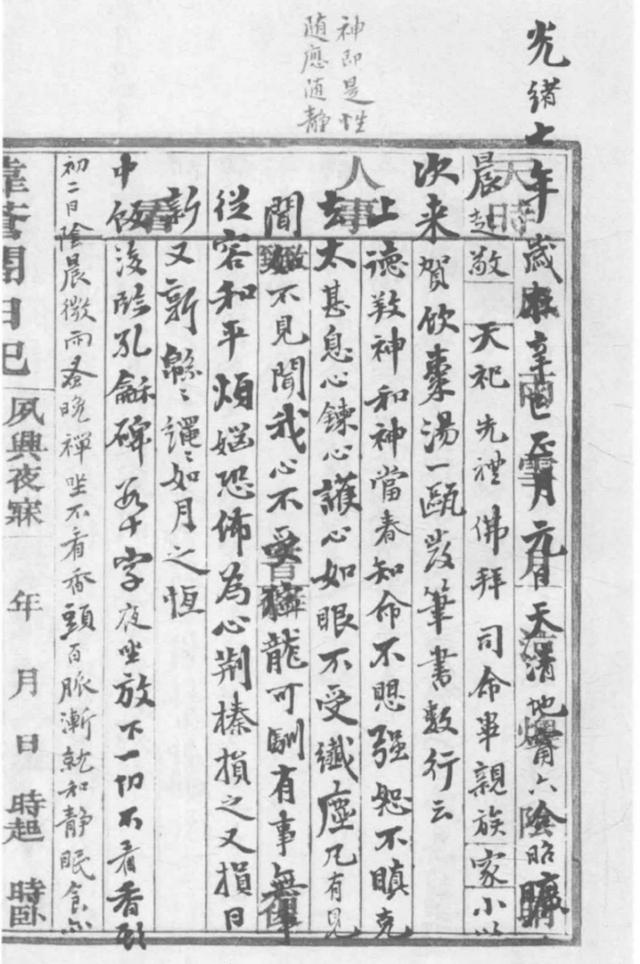 神即是性
随應随静
光緒七年歲在辛巳正月元日天清地甯六陰昭曠
晨起敬天祀先禮佛拜司命畢親族家小以
次来賀飲棗湯一甌發筆書數行云
上德敦神和神當春知命不思强恕不瞋克
去太甚息心鍊心護心如眼不受纖塵凡有見
聞如不見聞我心不受獰龍可馴有事無事
從容和平煩惱恐怖為心荆榛損之又損日
新又新緜緜繩繩如月之恆
中飯後臨孔龢碑卅字夜坐放下一切不看香頭
初二日陰晨微雨蚤晚禪坐不看香頭百脈漸就和静眠食亦
日记
夙興夜寐 年 月 日 時起 時臥